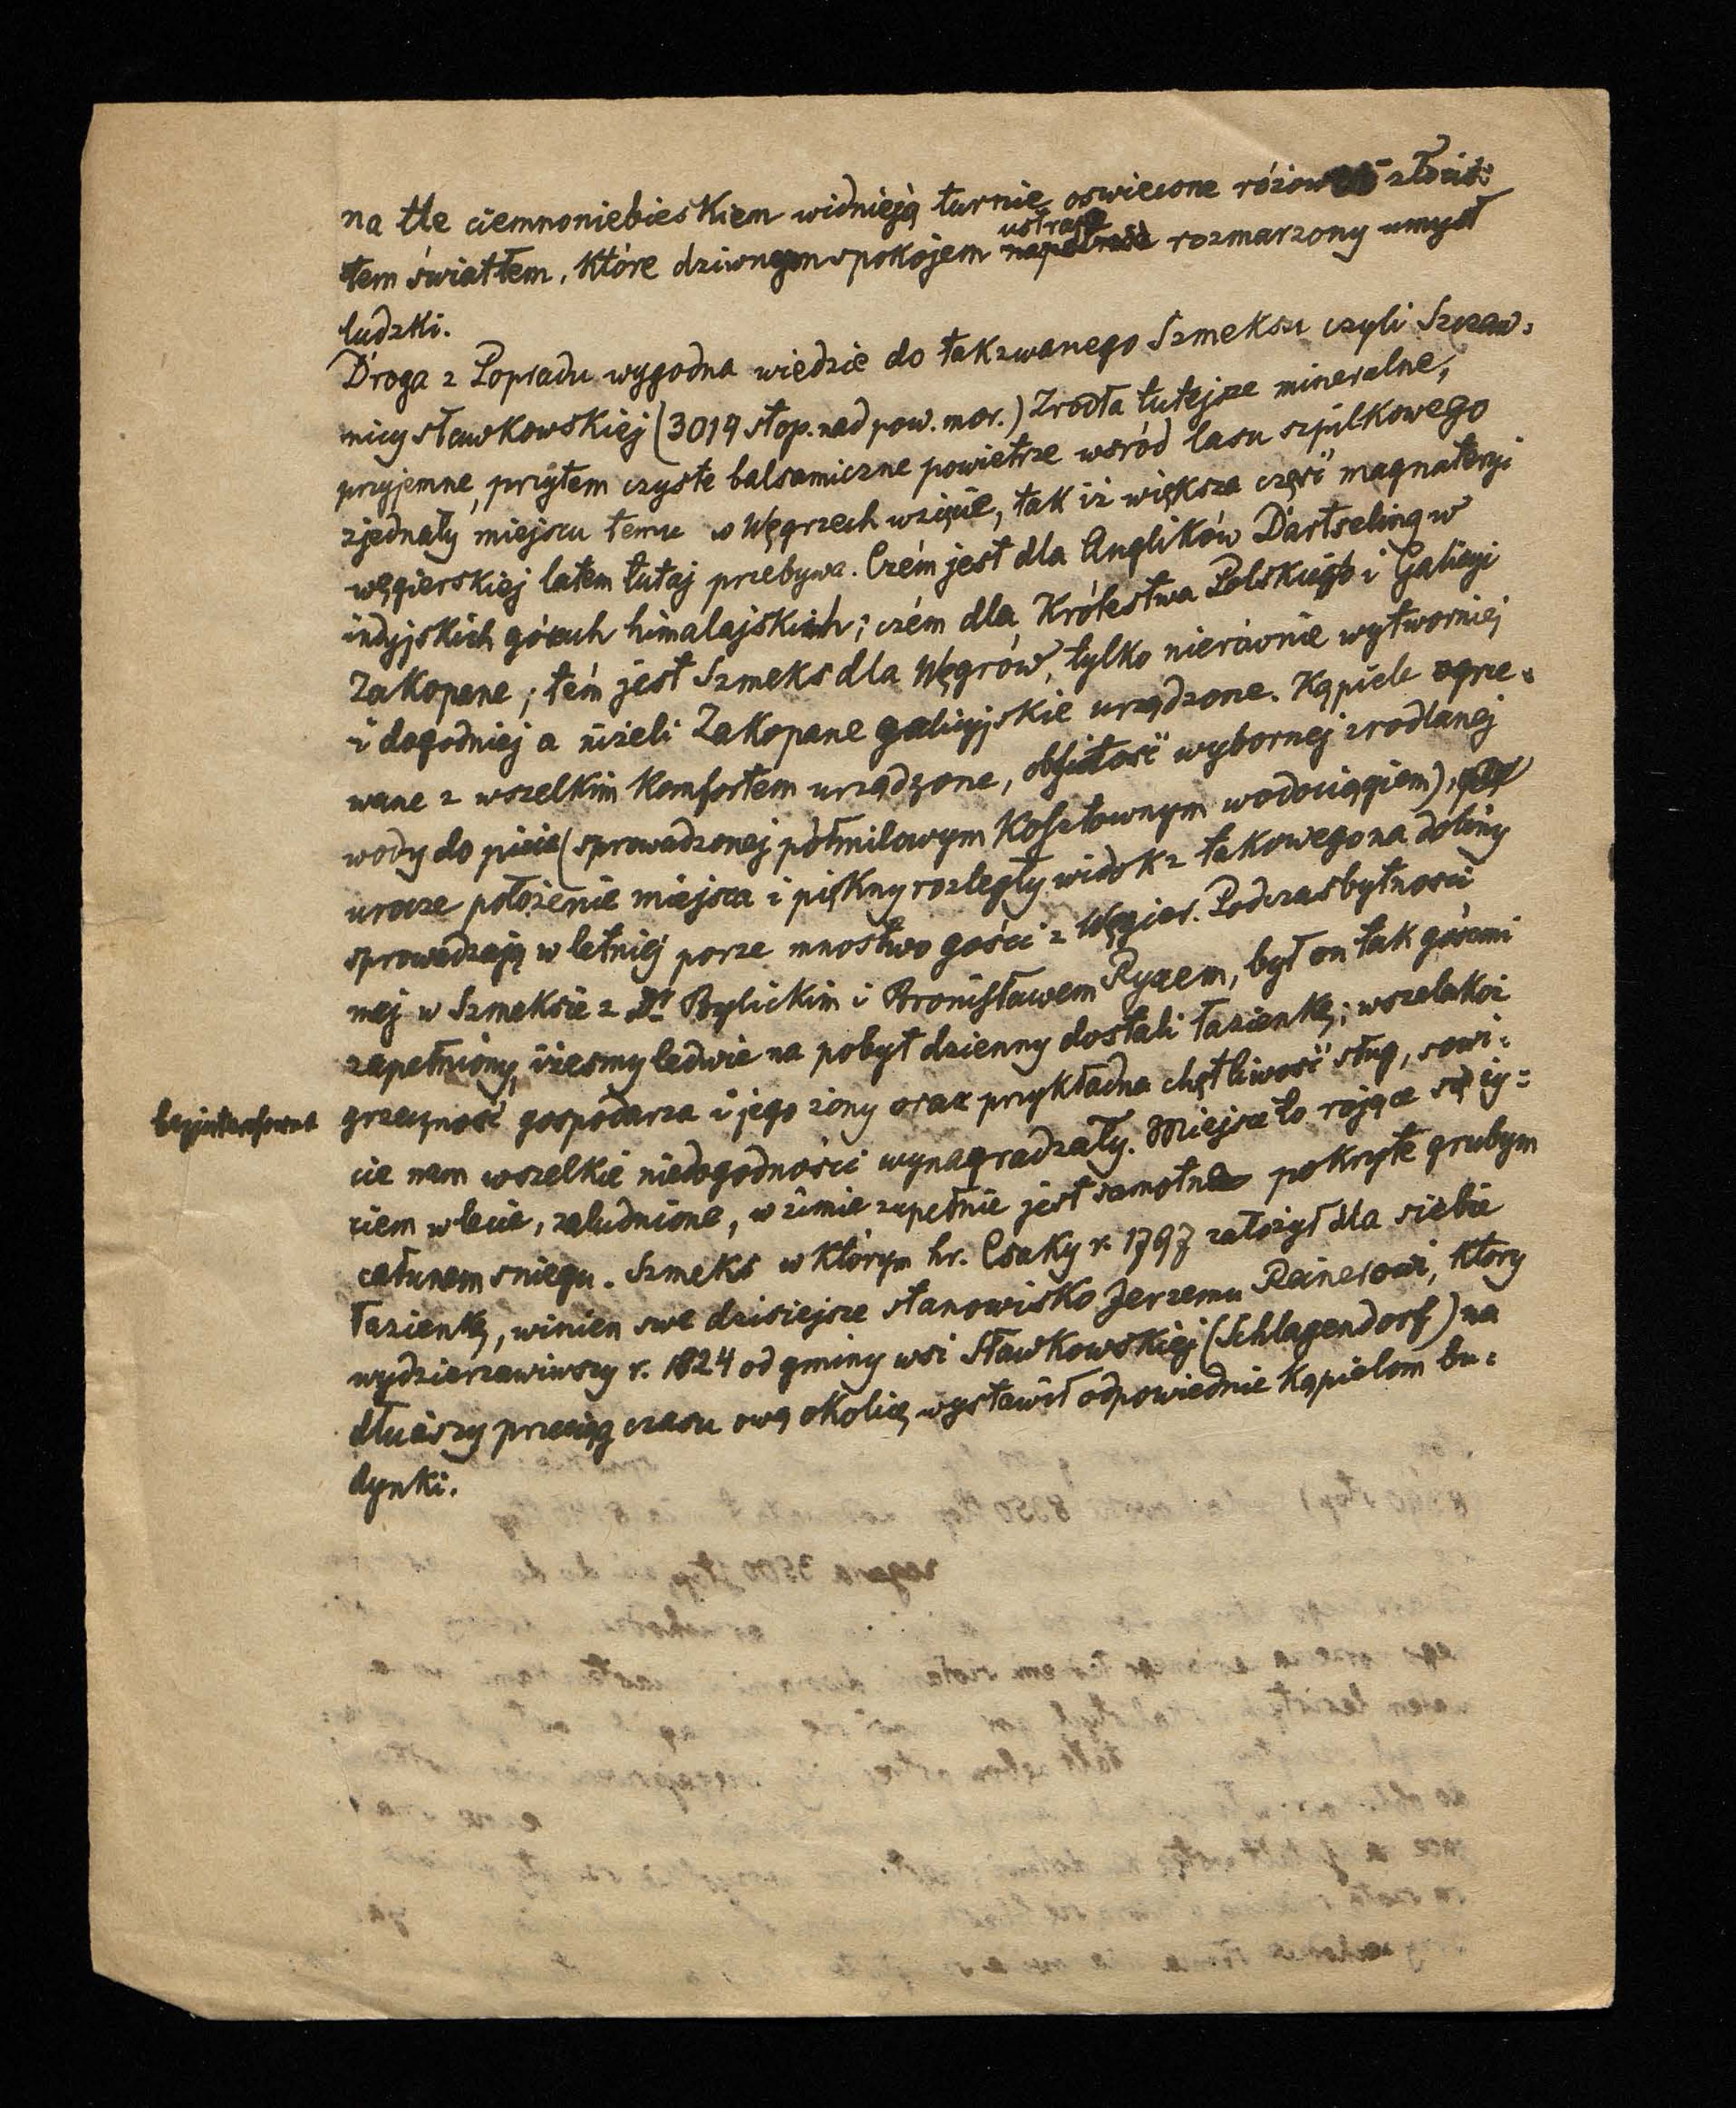 na tle ciemnoniebieskiem widnieją turnie oswiecone różow złocis:
tem światłem, które dziwnym spokojem
ustraja
napełnia rozmarzony umysł
ludzki.
Droga z Popradu wygodna wiedzie do takzwanego Szmeksu czyli Szczaw:
nicy sławkowskiej (3019 stop. nad pow. mor.) Zrodła tutejsze mineralne,
przyjemne, przytem czyste balsamiczne powietrze wsród lasu szpilkowego
zjednały miejscu temu w Węgrzech wzięcie, tak iż większa część magnateryi
węgierskiej latem tutaj przebywa. Czém jest dla Anglików Dartseling w
indyjskich górach himalajskich; czém dla Królestwa Polskiego i Galicyi
Zakopane; tém jest Szmeks dla Węgrów, tylko nierównie wytworniej
i dogodniej a niżeli Zakopane galicyjskie urządzone. Kąpiele ogrze:
wane z wszelkim Komfortem urządzone, obfitość wybornej zrodlanej
wody do picia (sprowadzonej półmilowym Kosztownym wodociągiem),
urocze położenie miejsca i piękny rozległy widok z takowego na doliny
sprowadzają w letniéj porze mnostwo gości z Węgier. Podczas bytnosci
mej w Szmeksie z Dr Bylickim i Bronisławem Ryxem, był on tak gośćmi
zapełniony, iżesmy ledwie na pobyt dzienny dostali łazienkę; wszelakoż
grzeczność gospodarza i jego żony oraz przykładna chętliwość sług, sowi:
bezinteresowna
cie nam wszelkie niedogodności wynagradzały. Miejsce to rojące się ży:
ciem w lecie, zaludnione, w zimie zupełnie jest samotne pokryte grubym
całunem sniegu. Szmeks w którym hr. Csaky r. 1797 założył dla siebie
łazienkę, winien swe dzisiejsze stanowisko Jerzemu Rainerowi, który
wydzierzawiwszy r. 1824 od gminy wsi Sławkowskiej (Schlagendorf) na
dłuższy przeciąg czasu ową okolicę, wystawił odpowiednie kąpielom bu:
dynki.